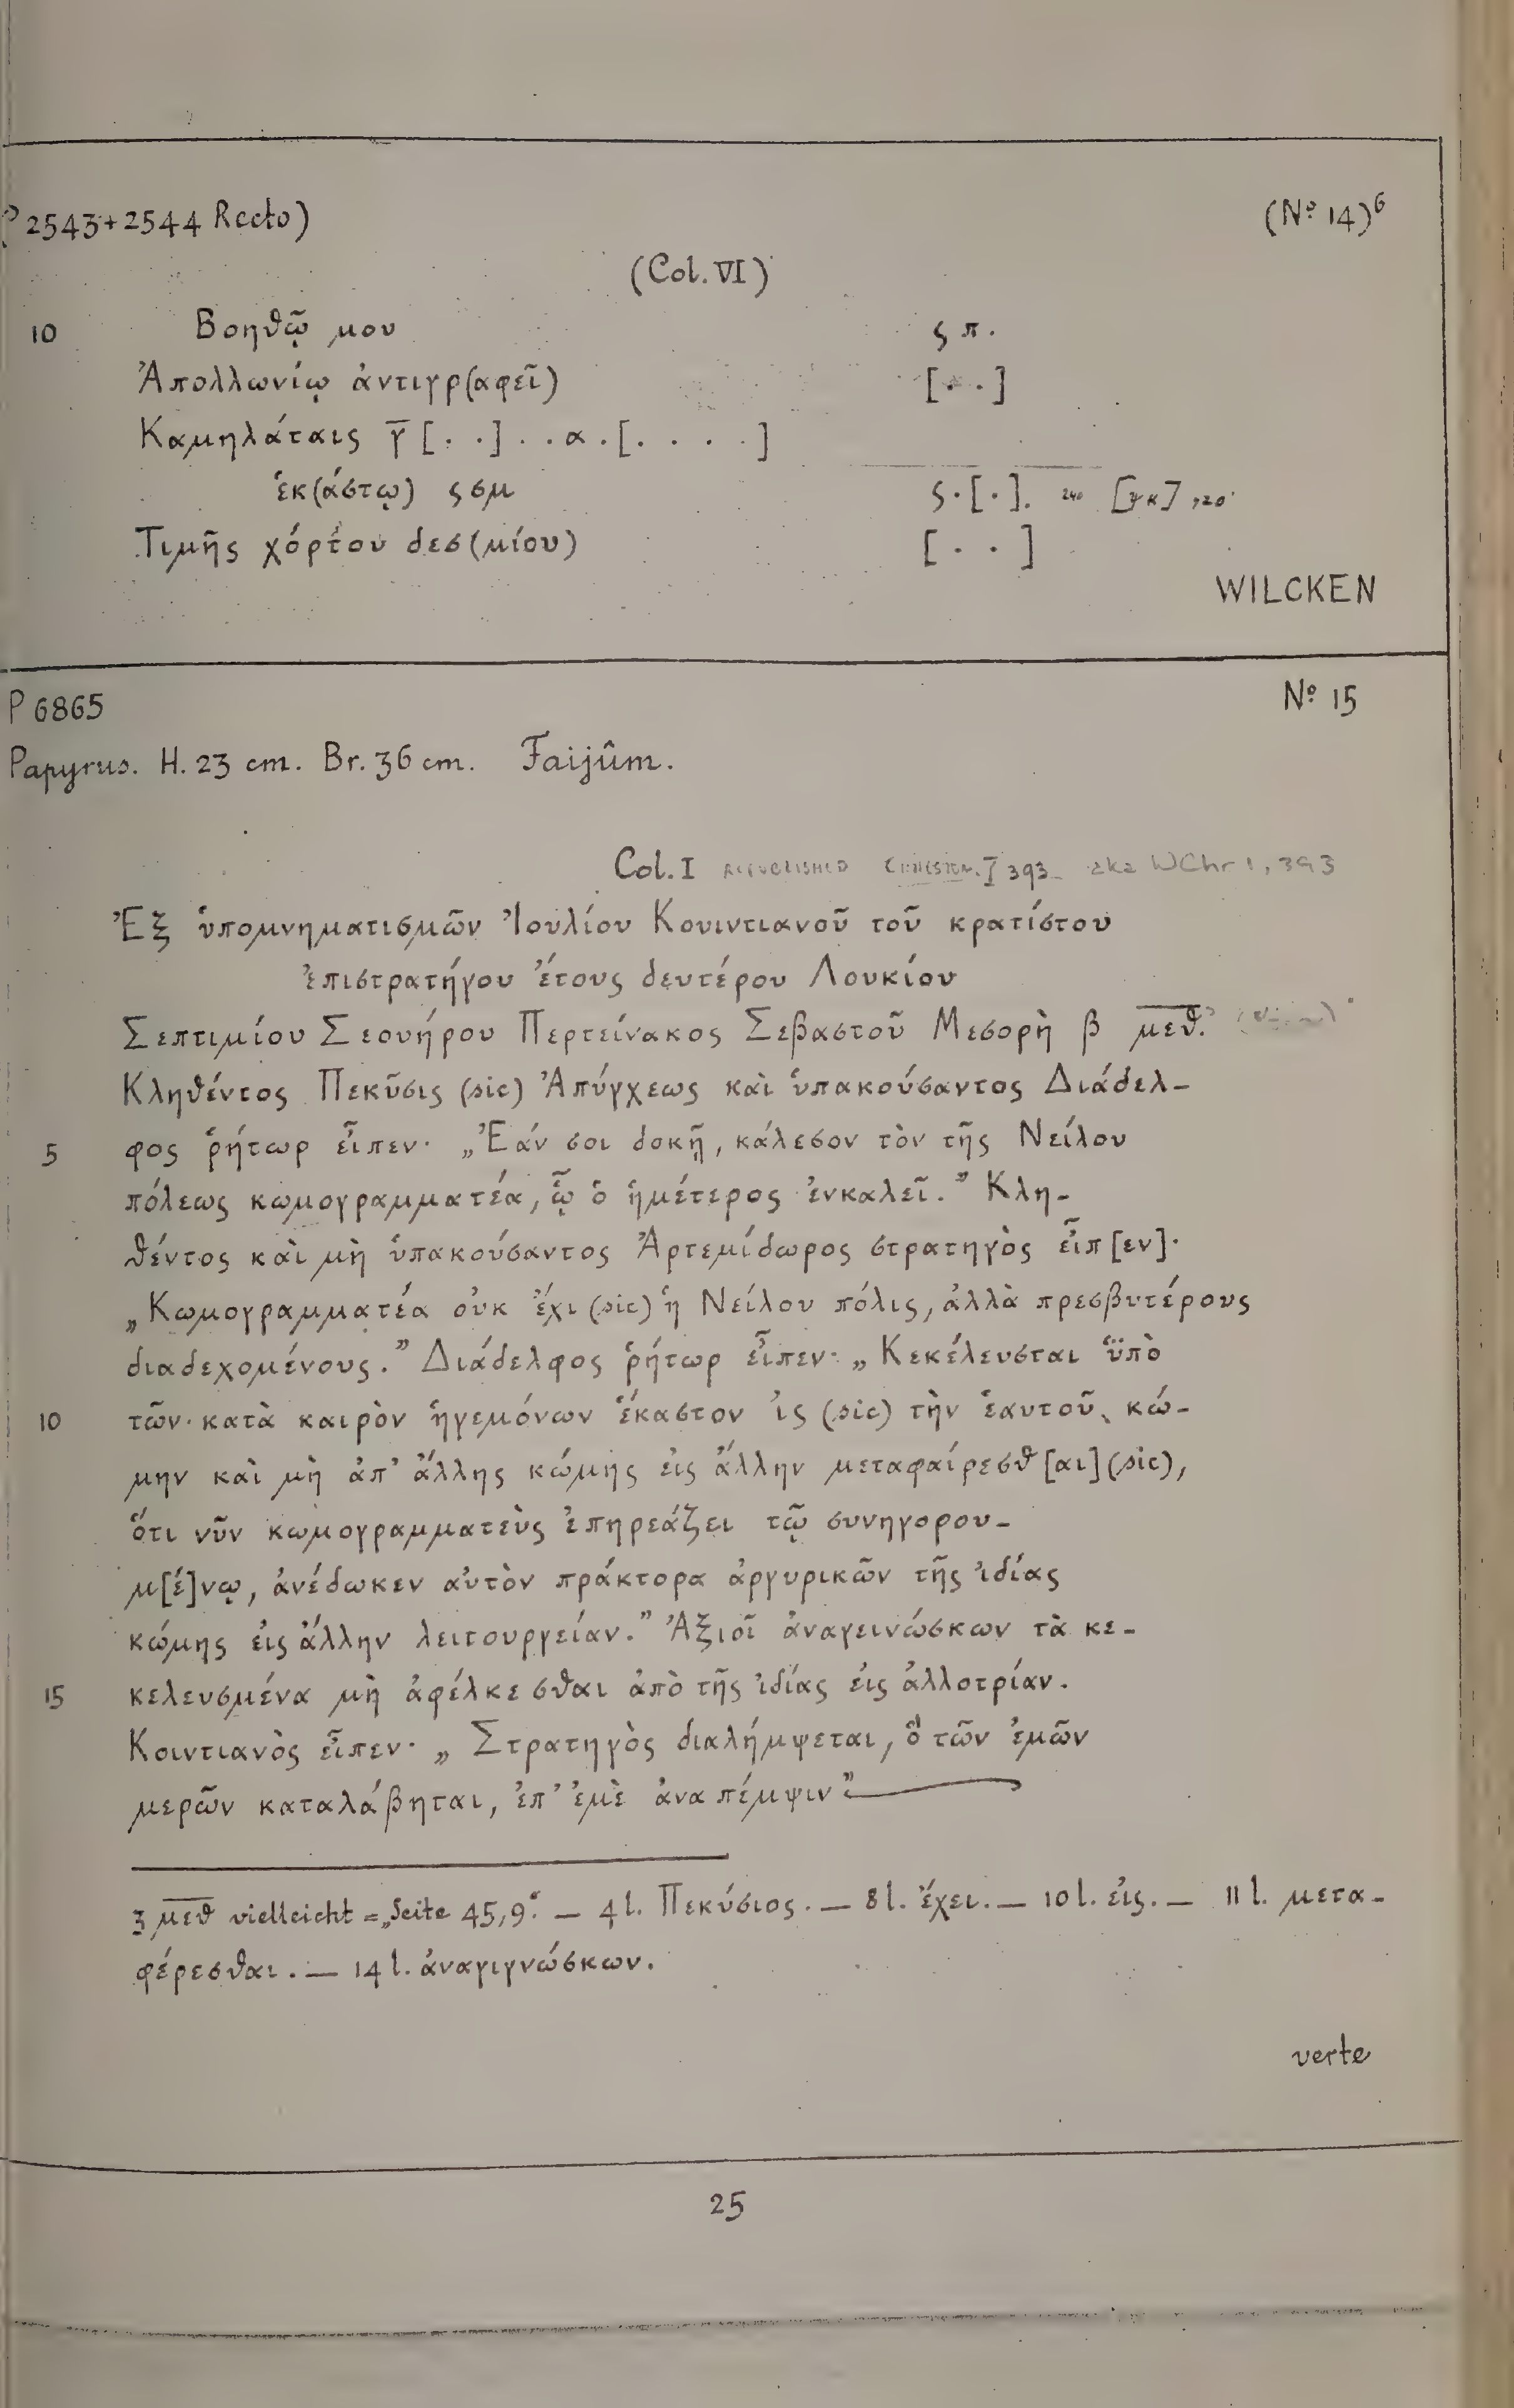 P 2543+2544 Recto) (Nº 14)⁶
(Col. VI)
10 Βοηθῷ μου ϛ π .
Ἀπολλωνίῳ ἀντιγρ(αφεῖ) [ . . ]
Καμηλάταις γ̅ [ . . ] . . α . [ . . . . ]
ἑκ(άστῳ) ϛ σμ ϛ . [ . ] . 240 [ψκ] 720
Τιμῆς χόρτου δεσ(μίου) [ . . ]
WILCKEN
P 6865 Nº 15
Papyrus. H. 23 cm. Br. 36 cm. Faijûm.
Col. I REPUBLISHED I 393 aka WChr 1, 393
Ἐξ ὑπομνηματισμῶν Ἰουλίου Κουιντιανοῦ τοῦ κρατίστου
ἐπιστρατήγου ἔτους δευτέρου Λουκίου
Σεπτιμίου Σεουήρου Περτείνακος Σεβαστοῦ Μεσορὴ β μεθ.
Κληθέντος Πεκῦσις (sic) Ἀπύγχεως καὶ ὑπακούσαντος Διάδελ-
5 φος ῥήτωρ εἶπεν· „Ἐάν σοι δοκῇ, κάλεσον τὸν τῆς Νείλου
πόλεως κωμογραμματέα, ᾧ ὁ ἡμέτερος ἐνκαλεῖ.” Κλη-
θέντος καὶ μὴ ὑπακούσαντος Ἀρτεμίδωρος στρατηγὸς εἶπ[εν]·
„Κωμογραμματέα οὐκ ἔχι (sic) ἡ Νείλου πόλις, ἀλλὰ πρεσβυτέρους
διαδεχομένους.” Διάδελφος ῥήτωρ εἶπεν· „Κεκέλευσται ὑπὸ
10 τῶν κατὰ καιρὸν ἡγεμόνων ἕκαστον ἰς (sic) τὴν ἑαυτοῦ κώ-
μην καὶ μὴ ἀπ’ ἄλλης κώμης εἰς ἄλλην μεταφαίρεσθ[αι] (sic),
ὅτι νῦν κωμογραμματεὺς ἐπηρεάζει τῷ συνηγορου-
μ[έ]νῳ, ἀνέδωκεν αὐτὸν πράκτορα ἀργυρικῶν τῆς ἰδίας
κώμης εἰς ἄλλην λειτουργείαν.” Ἀξιοῖ ἀναγεινώσκων τὰ κε-
15 κελευσμένα μὴ ἀφέλκεσθαι ἀπὸ τῆς ἰδίας εἰς ἀλλοτρίαν.
Κοιντιανὸς εἶπεν· „Στρατηγὸς διαλήμψεται, ὃ τῶν ἐμῶν
μερῶν καταλάβηται, ἐπ’ ἐμὲ ἀναπέμψιν”.
3 μεθ vielleicht = „Seite 45,9“. — 4 l. Πεκύσιος. — 8 l. ἔχει. — 10 l. εἰς. — 11 l. μετα-
φέρεσθαι. — 14 l. ἀναγιγνώσκων.
verte
25